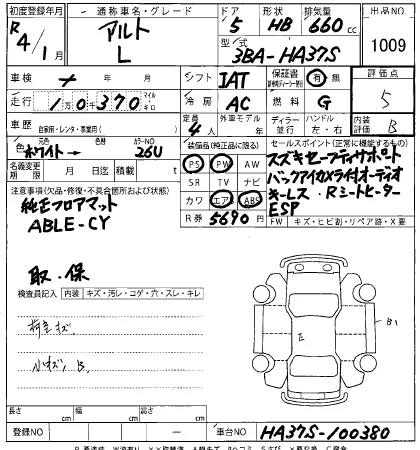 初度登録年月 通称車名・グレード ドア 形状 排気量 出品NO
R4/1月 アルト L 5 HB 660cc 1009
型式 3BA-HA37S
車検 年 月 シフト IAT 保証書 有 無 評価点
走行 1万0千370 マイル キロ 冷房 AC 燃料 G 5
車歴 自家用・レンタ・事業用( ) 定員 4人 外車モデル 年 ディーラー 並行 ハンドル 左・右 内装 B
色 元色 ホワイト→ 色替 カラーNO 26U
装備品(純正品に限る) セールスポイント(正常に機能するもの)
名義変更期限 月 日 積載 t
PS PW AW
SR TV ナビ
カワ エアB ABS
R券 5690円
スズキセーフティサポート
バックアイカメラ付オーディオ
キーレス・Rシートヒーター
ESP
注意事項(欠品・修復・不具合箇所および状態)
純正フロアマット
ABLE-CY
FW キズ・ヒビ割・リペア跡・X要
取・保
検査員記入 内装 キズ・汚レ・コゲ・穴・スレ・キレ
荷室キズ
小キズ、B
B1
長さ cm 幅 cm 高さ cm
登録NO 車台NO HA37S-100380